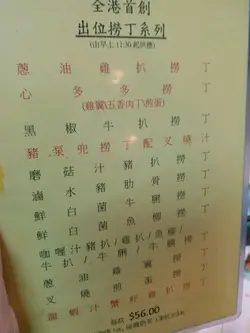 全港首創
出位撈丁系列
(由早上11:30起供應)
蔥油雞扒撈丁
心多多撈丁
(雞翼\五香肉丁\煎蛋)
黑椒牛扒撈丁
豬
兜撈丁配叉燒汁
磨菇汁豬扒撈丁
滷水豬肋骨撈丁
鮮白菌牛脷撈丁
鮮白菌魚柳撈丁
咖喱汁豬扒/雞扒/魚柳/
牛扒/牛脷/牛腩撈丁
蔥油雞翼撈丁
叉燒煎蛋撈丁
汁蟹籽雞扒撈丁
$56.00